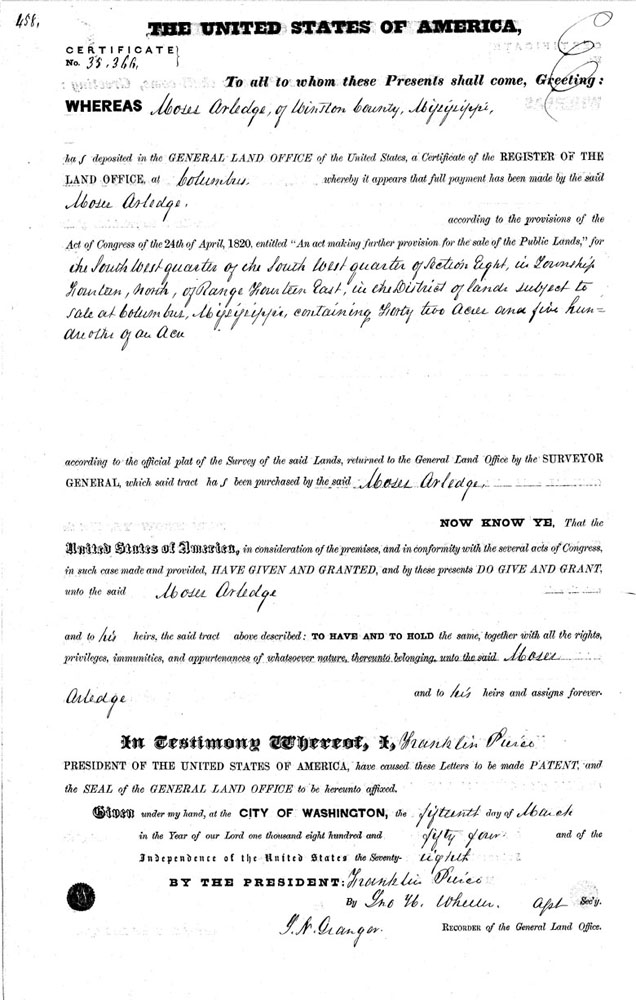 458.
THE UNITED STATES OF AMERICA,
CERTIFICATE
No. 35,366
To all to whom these Presents shall come, Greeting:
WHEREAS Moses Arledge, of Winston County, Mississippi,
has deposited in the GENERAL LAND OFFICE of the United States, a Certificate of the REGISTER OF THE
LAND OFFICE, at Columbus, whereby it appears that full payment has been made by the said
Moses Arledge,
according to the provisions of the
Act of Congress of the 24th of April, 1820, entitled "An act making further provision for the sale of the Public Lands," for
the South West quarter of the South West quarter of Section Eight, in Township
Fourteen, North, of Range Fourteen East, in the District of lands subject to
sale at Columbus, Mississippi, containing Forty two Acres and five hun=
dredths of an Acre
according to the official plat of the Survey of the said Lands, returned to the General Land Office by the SURVEYOR
GENERAL, which said tract has been purchased by the said Moses Arledge,
NOW KNOW YE, That the
United States of America, in consideration of the premises, and in conformity with the several acts of Congress,
in such case made and provided, HAVE GIVEN AND GRANTED, and by these presents DO GIVE AND GRANT,
unto the said Moses Arledge
and to his heirs, the said tract above described: TO HAVE AND TO HOLD the same, together with all the rights,
privileges, immunities, and appurtenances of whatsoever nature, thereunto belonging, unto the said Moses
Arledge and to his heirs and assigns forever.
In Testimony Whereof, I, Franklin Pierce
PRESIDENT OF THE UNITED STATES OF AMERICA, have caused these Letters to be made PATENT, and
the SEAL of the GENERAL LAND OFFICE to be hereunto affixed.
Given under my hand, at the CITY OF WASHINGTON, the fifteenth day of March
in the Year of our Lord one thousand eight hundred and fifty four and of the
Independence of the United States the Seventy-eighth
BY THE PRESIDENT: Franklin Pierce
By Jno H. Wheeler, Asst Sec'y.
J. N. Granger RECORDER of the General Land Office.